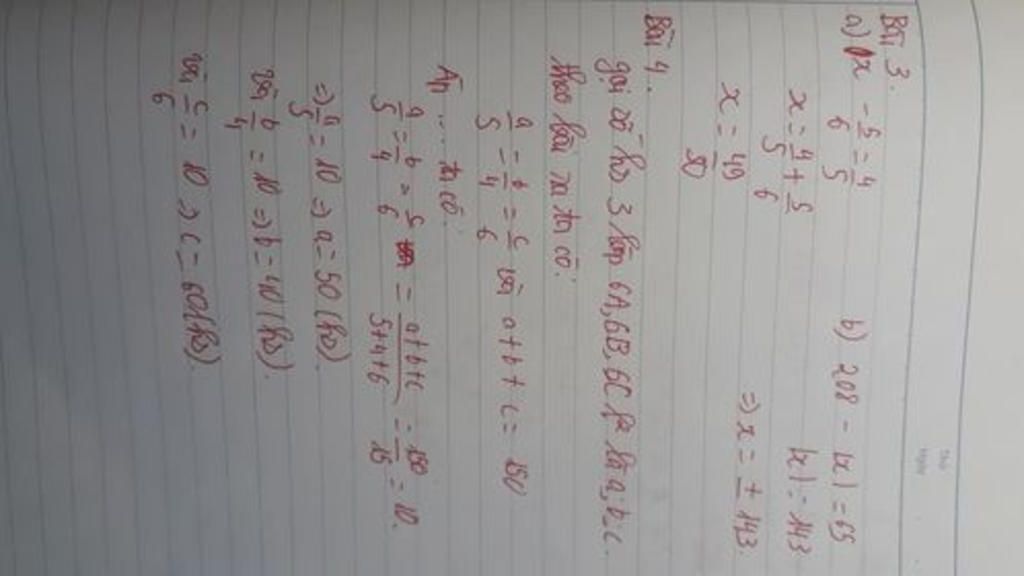 Bài 3.
a) x - 5/6 = 4/5 b) 208 - |x| = 65
x = 4/5 + 5/6 |x| = 143
x = 49/30 => x = ± 143.
Bài 4.
gọi số hs 3 lớp 6A, 6B, 6C lần là a, b, c.
theo bài ra ta có:
a/5 = b/4 = c/6 và a + b + c = 150
ta có:
a/5 = b/4 = c/6 = a+b+c/5+4+6 = 150/15 = 10.
=> a/5 = 10 => a = 50 (hs).
và b/4 = 10 => b = 40 (hs).
và c/6 = 10 => c = 60 (hs).